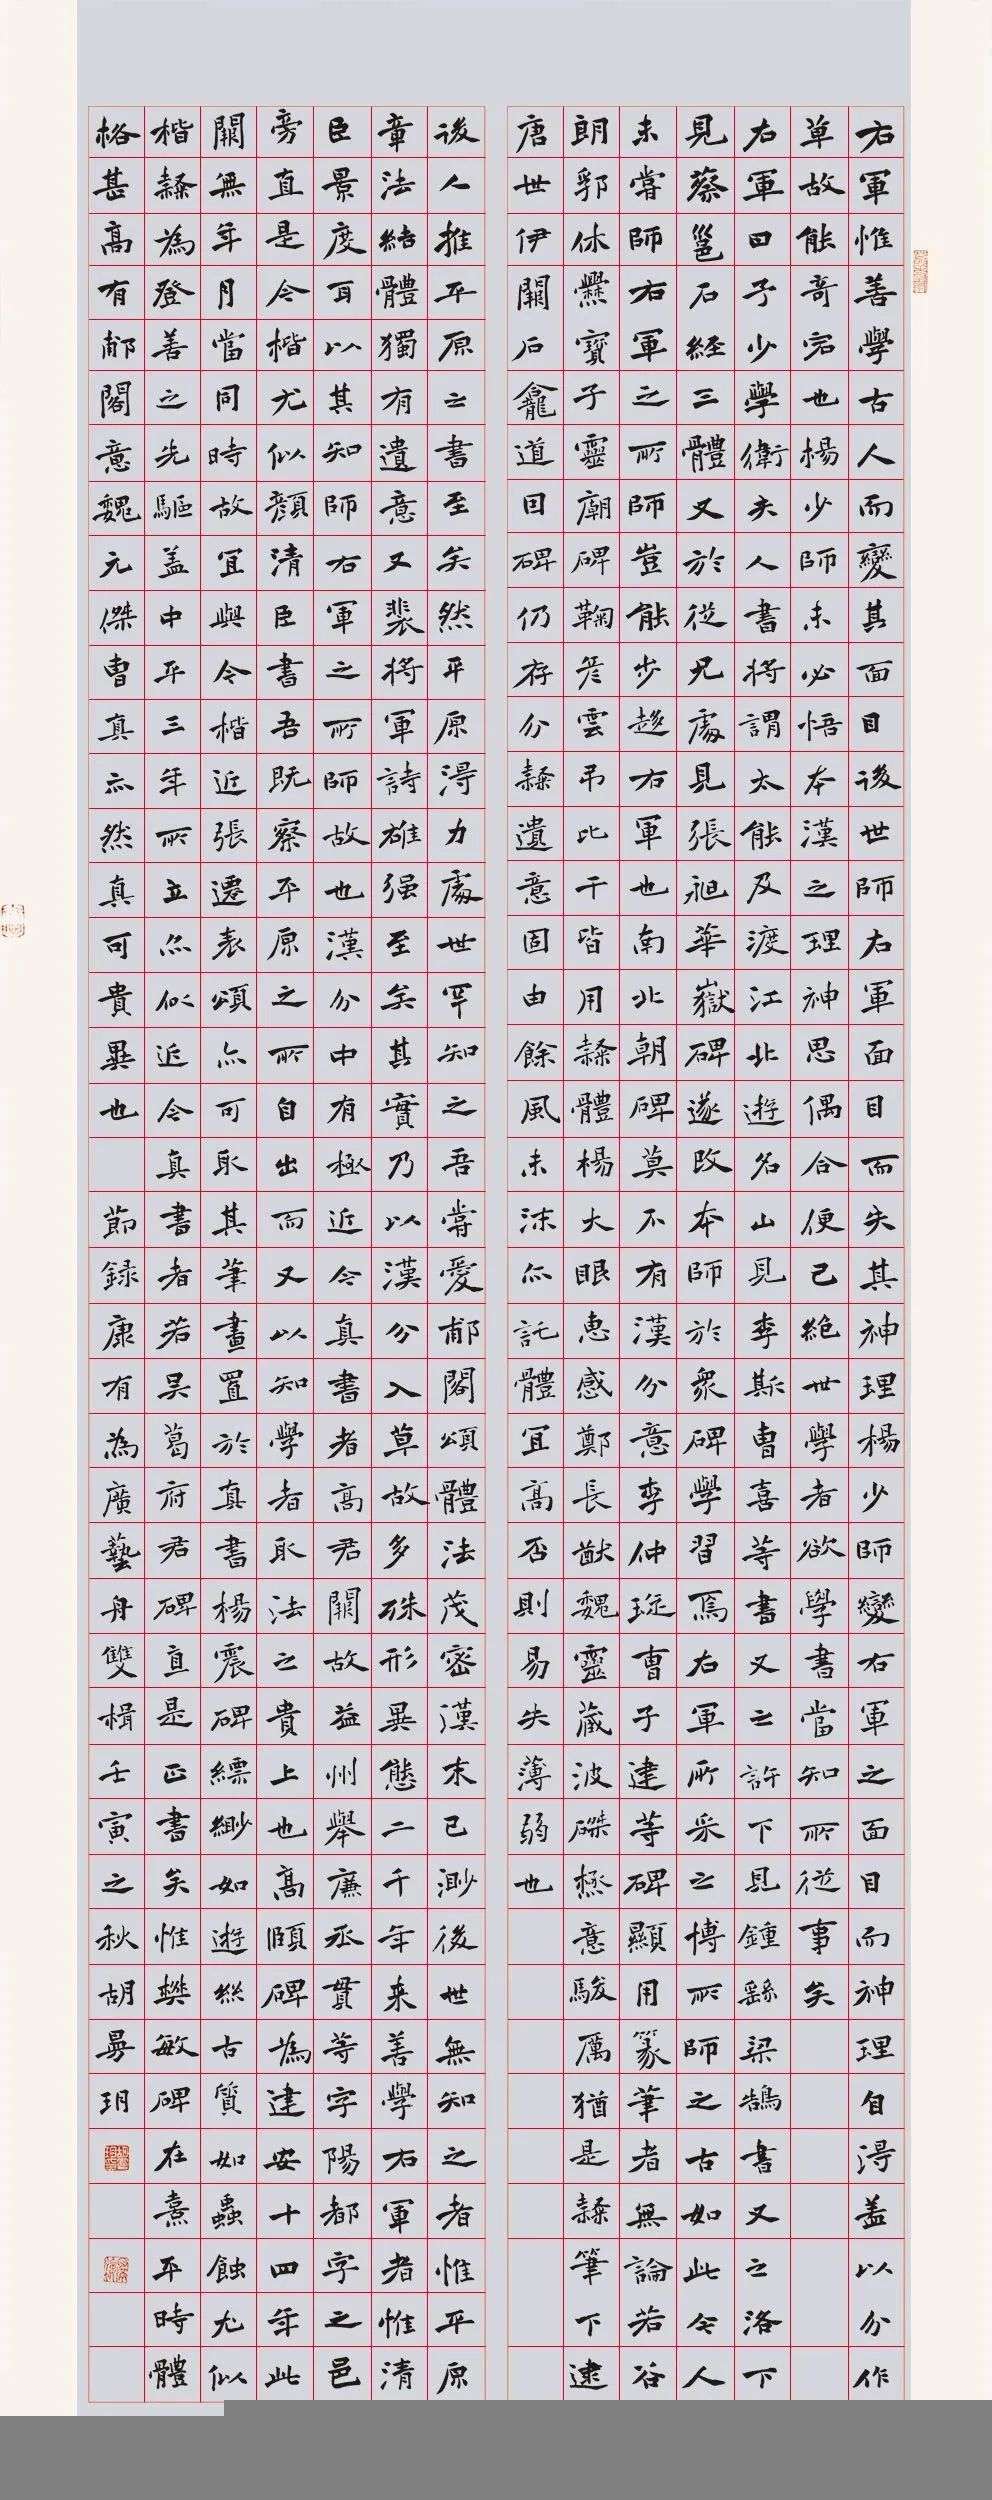 右軍惟善學古人而變其面目後世師右軍面目而失其神理楊少師變右軍之面目而神理自得蓋以分作
草故能奇宕也楊少師未必悟本漢之理神思偶合便已絶世學者欲學書當知所從事矣
右軍曰予少學衛夫人書將謂太能及渡江北遊名山見李斯曹喜等書又之許下見鍾繇梁鵠書又之洛下
見蔡邕石經三體又於從兄處見張昶華嶽碑遂改本師於衆碑學習焉右軍所采之博所師之古如此今人
未嘗師右軍之所師豈能步趍右軍也南北朝碑莫不有漢分意李仲琁曹子建等碑顯用篆筆者無論若谷
朗郛休爨寶子靈廟碑鞠彦雲弔比干皆用隸體楊大眼惠感鄭長猷魏靈藏波磔極意駿厲猶是隸筆下逮
唐世伊闕石龕道因碑仍存分隸遺意固由餘風未沬亦託體宜高否則易失薄弱也
後人推平原之書至矣然平原得力處世罕知之吾嘗愛郙閣頌體法茂密漢末已渺後世無知之者惟平原
章法結體獨有遺意又裴將軍詩雄强至矣其實乃以漢分入草故多殊形異態二千年来善學右軍者惟清
臣景度耳以其知師右軍之所師故也漢分中有極近今真書者高君闕故益州舉廉丞貫等字陽都字之邑
旁直是今楷尤似顔清臣書吾既察平原之所自出而又以知學者取法之貴上也高頤碑為建安十四年此
闕無年月當同時故宜與今楷近張遷表頌亦可取其筆畫置於真書楊震碑縹緲如遊絲古質如蟲蝕尤似
楷隸為登善之先驅蓋中平三年所立亦似近今真書者若吴葛府君碑直是正書矣惟樊敏碑在熹平時體
格甚高有郙閣意魏元傑曹真亦然真可貴異也 節録康有為廣藝舟雙楫壬寅之秋胡昮玥